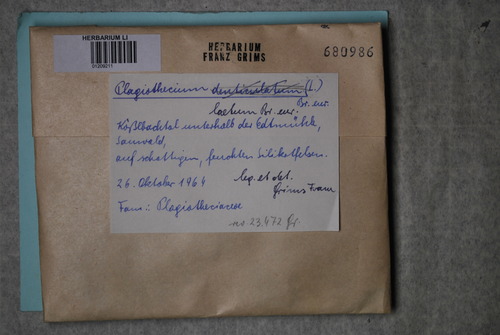 HERBARIUM LI
01209211
HERBARIUM
FRANZ GRIMS
680986
Plagiothecium denticulatum (L.)
Br. eur.
laetum Br. eur.
Kößlbachtal unterhalb der Edtmühle,
Sauwald,
auf schattigen, feuchten Silikatfelsen.
26. Oktober 1964
leg. et det.
Grims Franz
Fam.: Plagiotheciaceae
no 23.472 Gr.